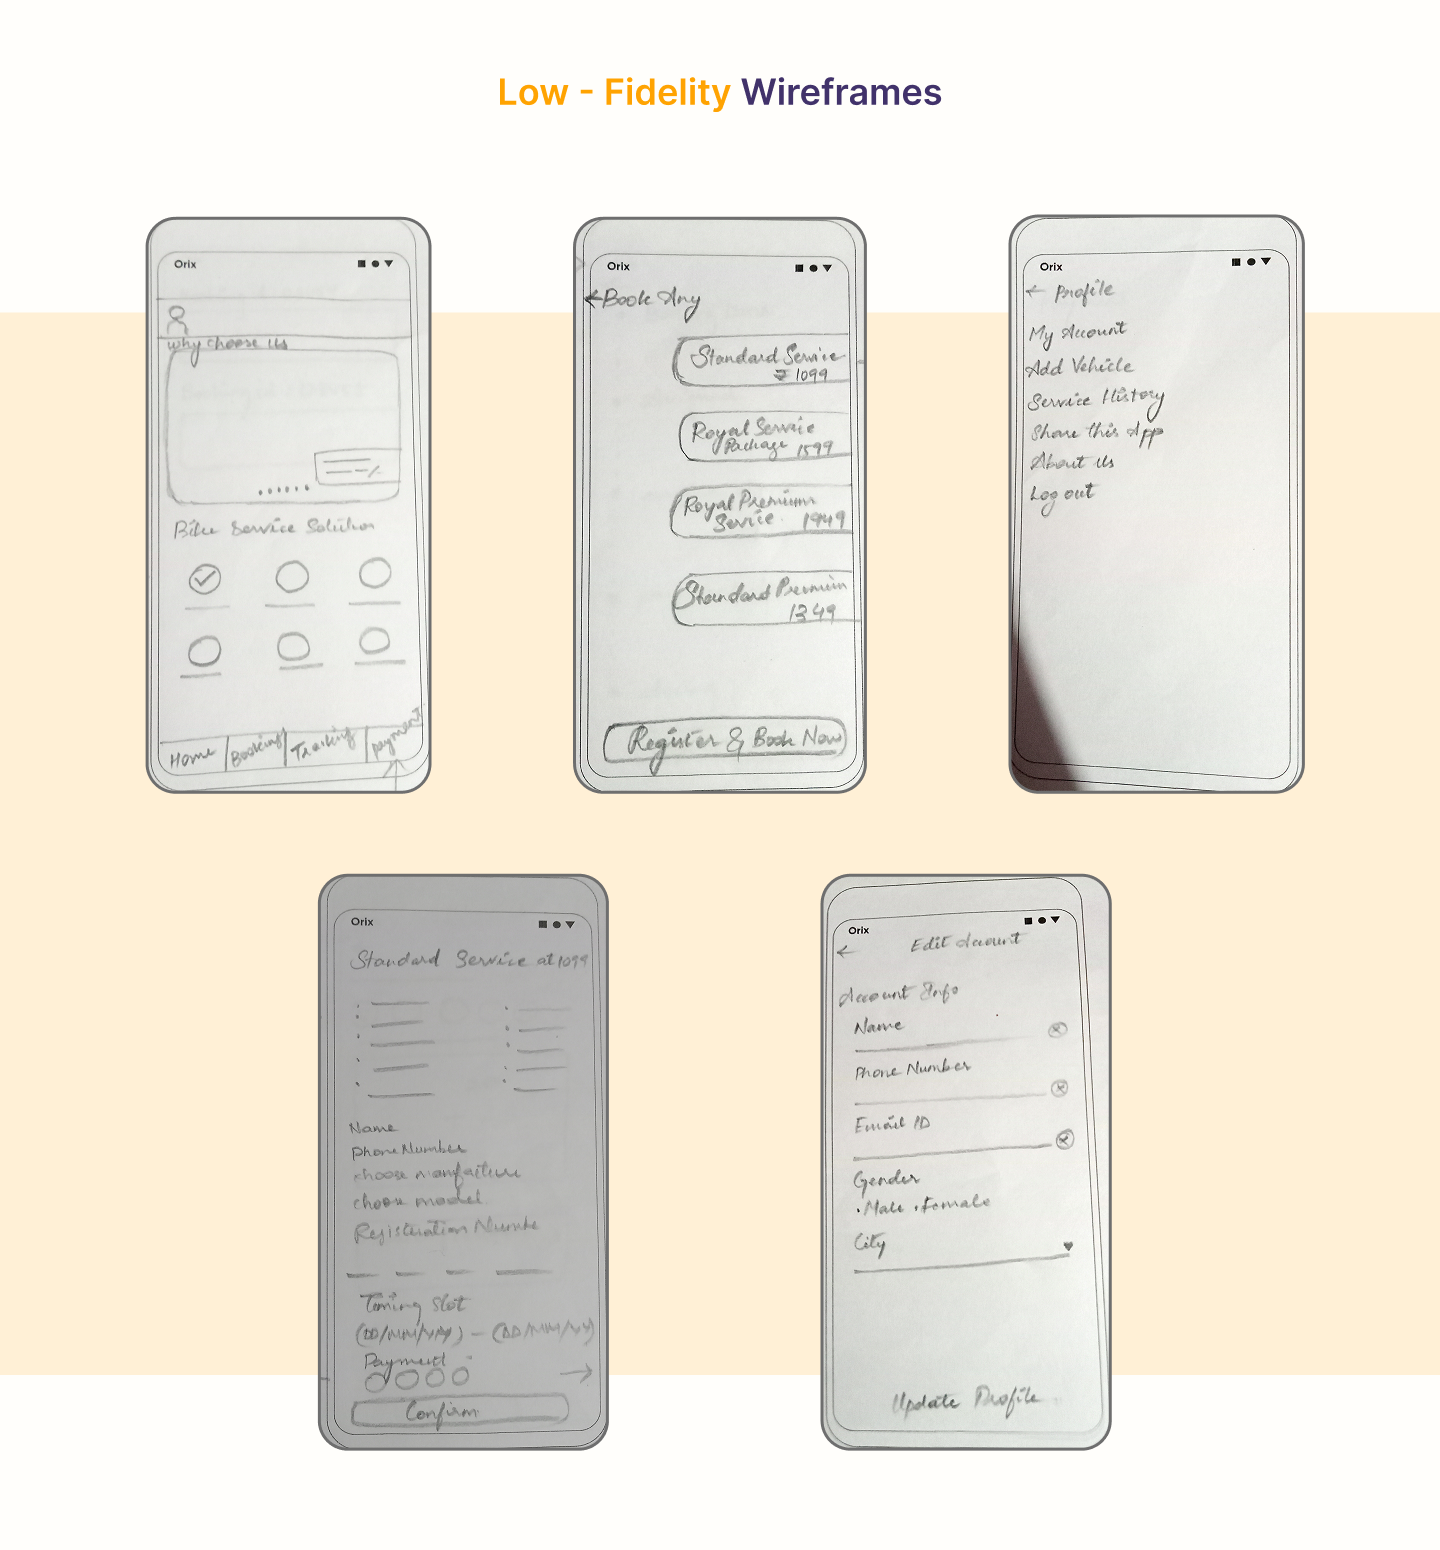 Low - Fidelity Wireframes
Orix
why choose us
Bike Service Solution
Home Booking Tracking payment
Orix
Book Any
Standard Service
₹ 1099
Royal Service
Package 1599
Royal Premium
Service 1949
Standard Premium
1349
Register & Book Now
Orix
Profile
My Account
Add Vehicle
Service History
Share this App
About Us
Log out
Orix
Standard Service at 1099
Name
Phone Number
choose manfacture
choose model
Registeration Numbe
Timing Slot
(DD/MM/YY) - (DD/MM/YY)
Payment
Confirm
Orix
Edit Account
Account Info
Name
Phone Number
Email ID
Gender
.Male .Female
City
Update Profile